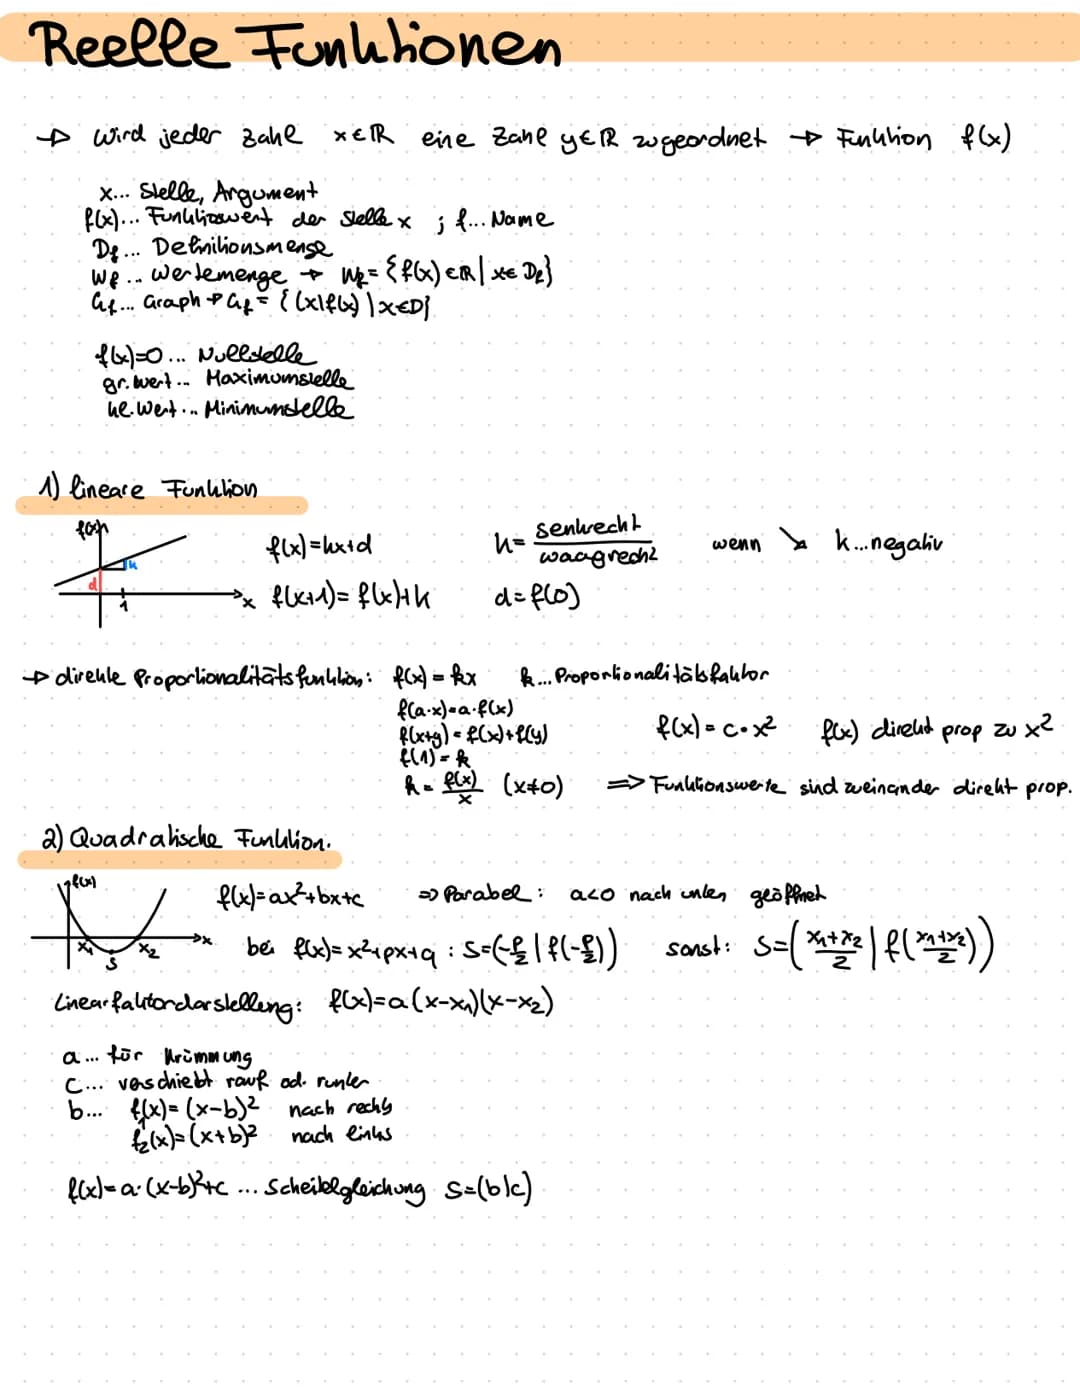 Reelle Funktionen
→ wird jeder Zahl x∈ℝ eine Zahl y∈ℝ zugeordnet → Funktion f(x)
x... Stelle, Argument
f(x)... Funktionswert der Stelle x ; f... Name
Df... Definitionsmenge
Wf... Wertemenge → Wf = {f(x) ∈ℝ | x∈ Df}
Gf... Graph → Gf = {(x|f(x) | x∈D}
f(x)=0... Nullstelle
gr. Wert... Maximumstelle
kl. Wert... Minimumstelle
1) lineare Funktion
f(x)
k
d
1
x
f(x)=kx+d k= senkrecht/waagrecht wenn ↘ k...negativ
f(x+1)= f(x)+k d=f(0)
→ direkte Proportionalitätsfunktion: f(x) = kx k... Proportionalitätsfaktor
f(a·x)=a·f(x)
f(x+y) = f(x)+f(y) f(x) = c·x² f(x) direkt prop zu x²
f(1) = k
k = f(x)/x (x≠0) => Funktionswerte sind zueinander direkt prop.
2) Quadratische Funktion.
f(x)
x₁ x₂ x
S
f(x)=ax²+bx+c => Parabel: a<0 nach unten geöffnet
bei f(x)= x²+px+q : S=(-p/2 | f(-p/2)) sonst: S=(x₁+x₂/2 | f(x₁+x₂/2))
Linearfaktordarstellung: f(x)=a(x-x₁)(x-x₂)
a... für Krümmung
c... verschiebt rauf od. runter
b... f₁(x)= (x-b)² nach rechts
f₂(x)= (x+b)² nach links
f(x)= a·(x-b)²+c ... Scheitelgleichung S=(b|c)